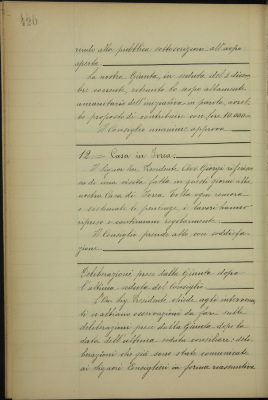 420
rendo alla pubblica sottoscrizione all'uopo
aperta
La nostra Giunta, in seduta del 3 dicem
bre corrente, ritenuto lo scopo altamente
umanitario dell'iniziativa in parola, avreb
be proposto di contribuire con lire 10.000.=
Il Consiglio unanime approva
12 = Casa in Ivrea:
Il Signor Ing. Presidente Cav. Giorgi riferisce
di una visita fatta in questi giorni alla
nostra Casa di Ivrea. Tolta ogni remora
e sistemate le pratiche, i lavori hanno
ripreso e continuano regolarmente
Il Consiglio prende atto con soddisfa
zione
Deliberazioni prese dalla Giunta dopo
l'ultima seduta del Consiglio
L'On. Sig. Presidente chiede agli interven
ti se abbiano osservazioni da fare sulle
deliberazioni prese dalla Giunta dopo la
data dell'ultima seduta consiliare; deli
berazioni che già sono state comunicate
ai Signori Consiglieri in forma riassuntiva